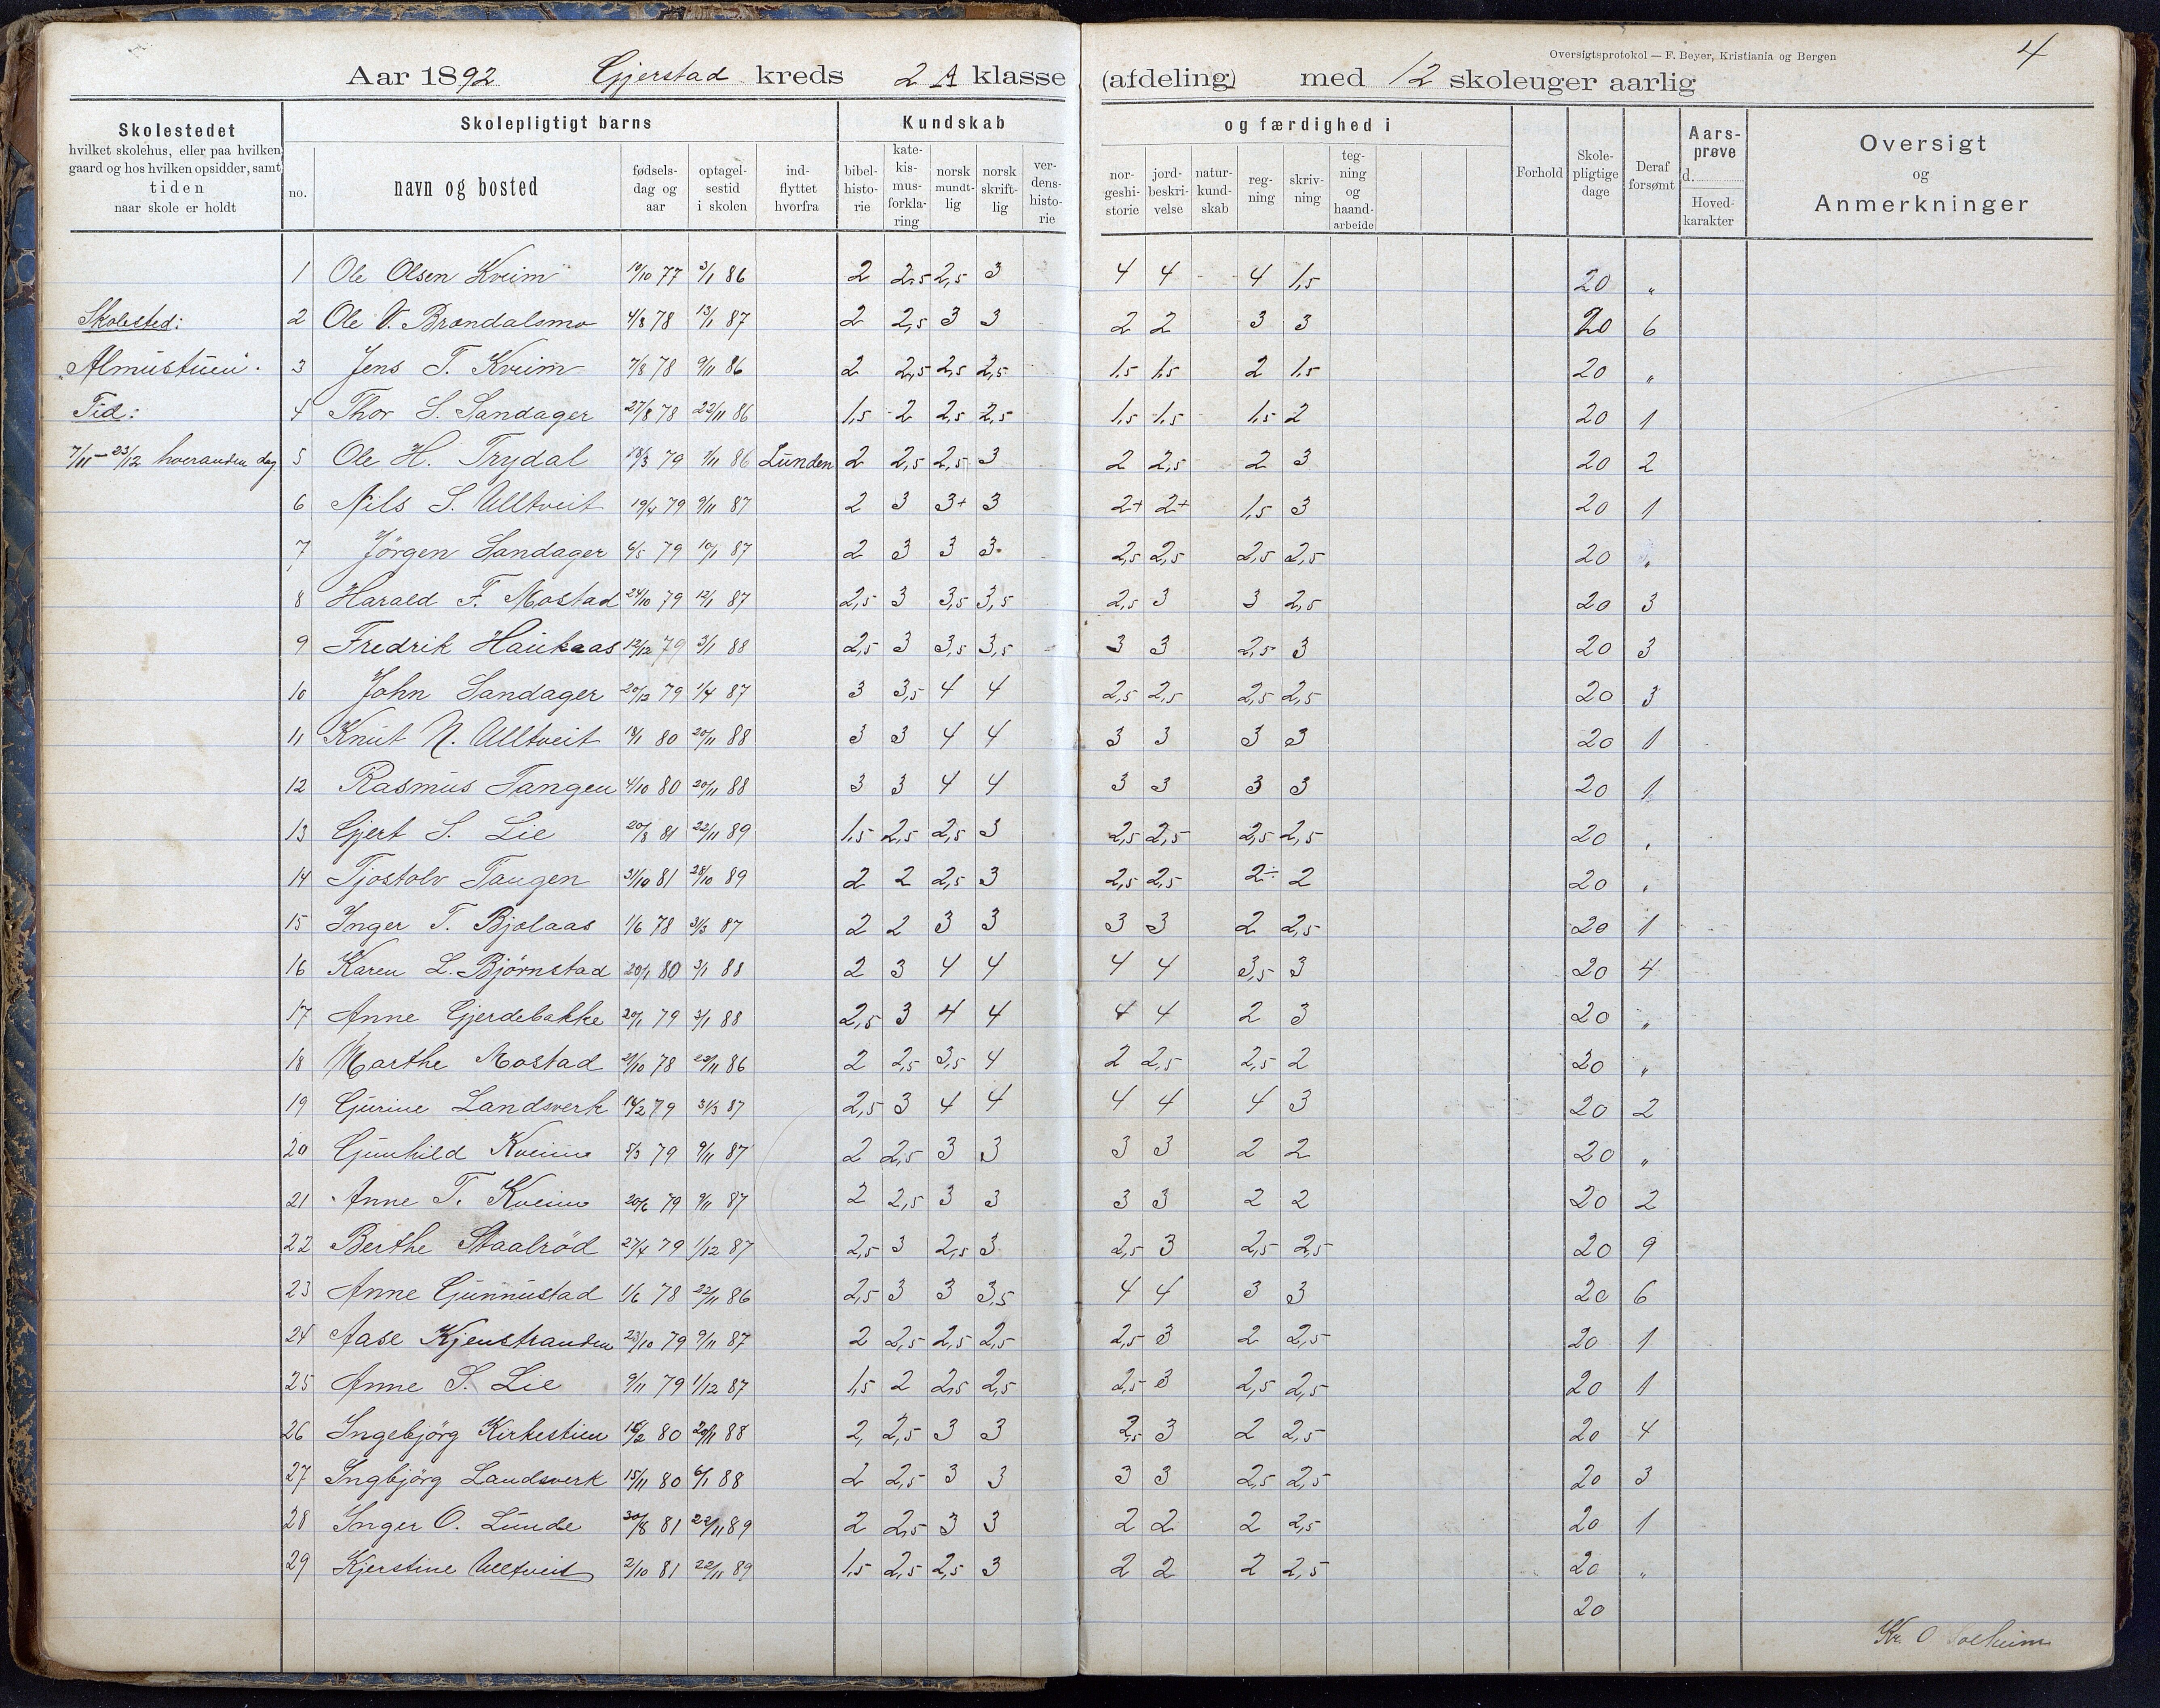 Oversigtsprotokol — F. Beyer, Kristiania og Bergen
4
Aar 1892 Gjerstad kreds 2 A klasse (afdeling) med 12 skoleuger aarlig
Skolestedet
hvilket skolehus, eller paa hvilken
gaard og hos hvilken opsidder, samt
tiden
naar skole er holdt
Skolepligtigt barns
no.
navn og bosted
fødsels-
dag og
aar
optagel-
sestid
i skolen
ind-
flyttet
hvorfra
Kundskab
bibel-
histo-
rie
kate-
kis-
mus-
forkla-
ring
norsk
mundt-
lig
norsk
skrift-
lig
ver-
dens-
histo-
rie
og færdighed i
nor-
geshi-
storie
jord-
beskri-
velse
natur-
kund-
skab
reg-
ning
skriv-
ning
teg-
ning
og
haand-
arbeide
Forhold
Skole-
pligtige
dage
Deraf
forsømt
Aars-
prøve
d.
Hoved-
karakter
Oversigt
og
Anmerkninger
Skolested:
"Almustuen".
Tid:
7/11–23/12 hveranden dag
1 Ole Olsen Kveim 19/10 77 3/1 86 2 2,5 2,5 3 4 4 4 1,5 20 "
2 Ole V. Brændalsmo 4/8 78 13/1 87 2 2,5 3 3 2 2 3 3 20 6
3 Jens T. Kveim 7/8 78 9/11 86 2 2,5 2,5 2,5 1,5 1,5 2 1,5 20 "
4 Thor S. Sandager 27/8 78 22/11 86 1,5 2 2,5 2,5 1,5 1,5 1,5 2 20 1
5 Ole H. Trydal 18/3 79 1/11 86 Lunden 2 2,5 2,5 3 2 2,5 2 3 20 2
6 Nils S. Ulltveit 19/4 79 9/11 87 2 3 3+ 3 2+ 2+ 1,5 3 20 1
7 Jörgen Sandager 6/5 79 10/1 87 2 3 3 3 2,5 2,5 2,5 2,5 20 "
8 Harald F. Mostad 24/10 79 12/1 87 2,5 3 3,5 3,5 2,5 3 3 2,5 20 3
9 Fredrik Haukaas 12/12 79 3/1 88 2,5 3 3,5 3,5 3 3 2,5 3 20 3
10 John Sandager 20/12 79 1/4 87 3 3,5 4 4 2,5 2,5 2,5 2,5 20 3
11 Knut N. Ulltveit 18/1 80 20/11 88 3 3 4 4 3 3 3 3 20 1
12 Rasmus Tangen 4/10 80 20/11 88 3 3 4 4 3 3 3 3 20 1
13 Gjert S. Lie 20/8 81 22/11 89 1,5 2,5 2,5 3 2,5 2,5 2,5 2,5 20 "
14 Tjostolv Tangen 31/10 81 28/10 89 2 2 2,5 3 2,5 2,5 2÷ 2 20 "
15 Inger T. Bjolaas 1/6 78 31/3 87 2 2 3 3 3 3 2 2,5 20 1
16 Karen L. Bjørnstad 20/1 80 3/1 88 2 3 4 4 4 4 3,5 3 20 4
17 Anne Gjerdebakke 20/1 79 3/1 88 2,5 3 4 4 4 4 2 3 20 "
18 Marthe Mostad 21/10 78 22/11 86 2 2,5 3,5 4 2 2,5 2,5 2 20 "
19 Gurine Landsverk 14/2 79 31/3 87 2,5 3 4 4 4 4 4 3 20 2
20 Gunhild Kveim 5/3 79 9/11 87 2 2,5 3 3 3 3 2 2 20 "
21 Anne T. Kveim 20/6 79 9/11 87 2 2,5 3 3 3 3 2 2 20 2
22 Berthe Staalröd 27/4 79 1/12 87 2,5 3 2,5 3 2,5 3 2,5 2,5 20 9
23 Anne Gunnustad 1/6 78 22/11 86 2,5 3 3 3,5 4 4 3 3 20 6
24 Aase Kjenstranden 23/10 79 9/11 87 2 2,5 2,5 2,5 2,5 3 2 2,5 20 1
25 Anne S. Lie 9/11 79 1/12 87 1,5 2 2,5 2,5 2,5 3 2,5 2,5 20 1
26 Ingebjörg Kirkestuen 16/2 80 20/11 88 2, 2,5 3 3 2,5 3 2 2,5 20 4
27 Ingbjörg Landsverk 15/11 80 6/1 88 2 2,5 3 3 3 3 2,5 2,5 20 3
28 Inger O. Lunde 30/8 81 22/11 89 2 2,5 3 3 2 2 2 2,5 20 1
29 Kjerstine Ulltveit 2/10 81 22/11 89 1,5 2,5 2,5 3 2 2 2 2,5 20 "
20
Kr. O Solheim